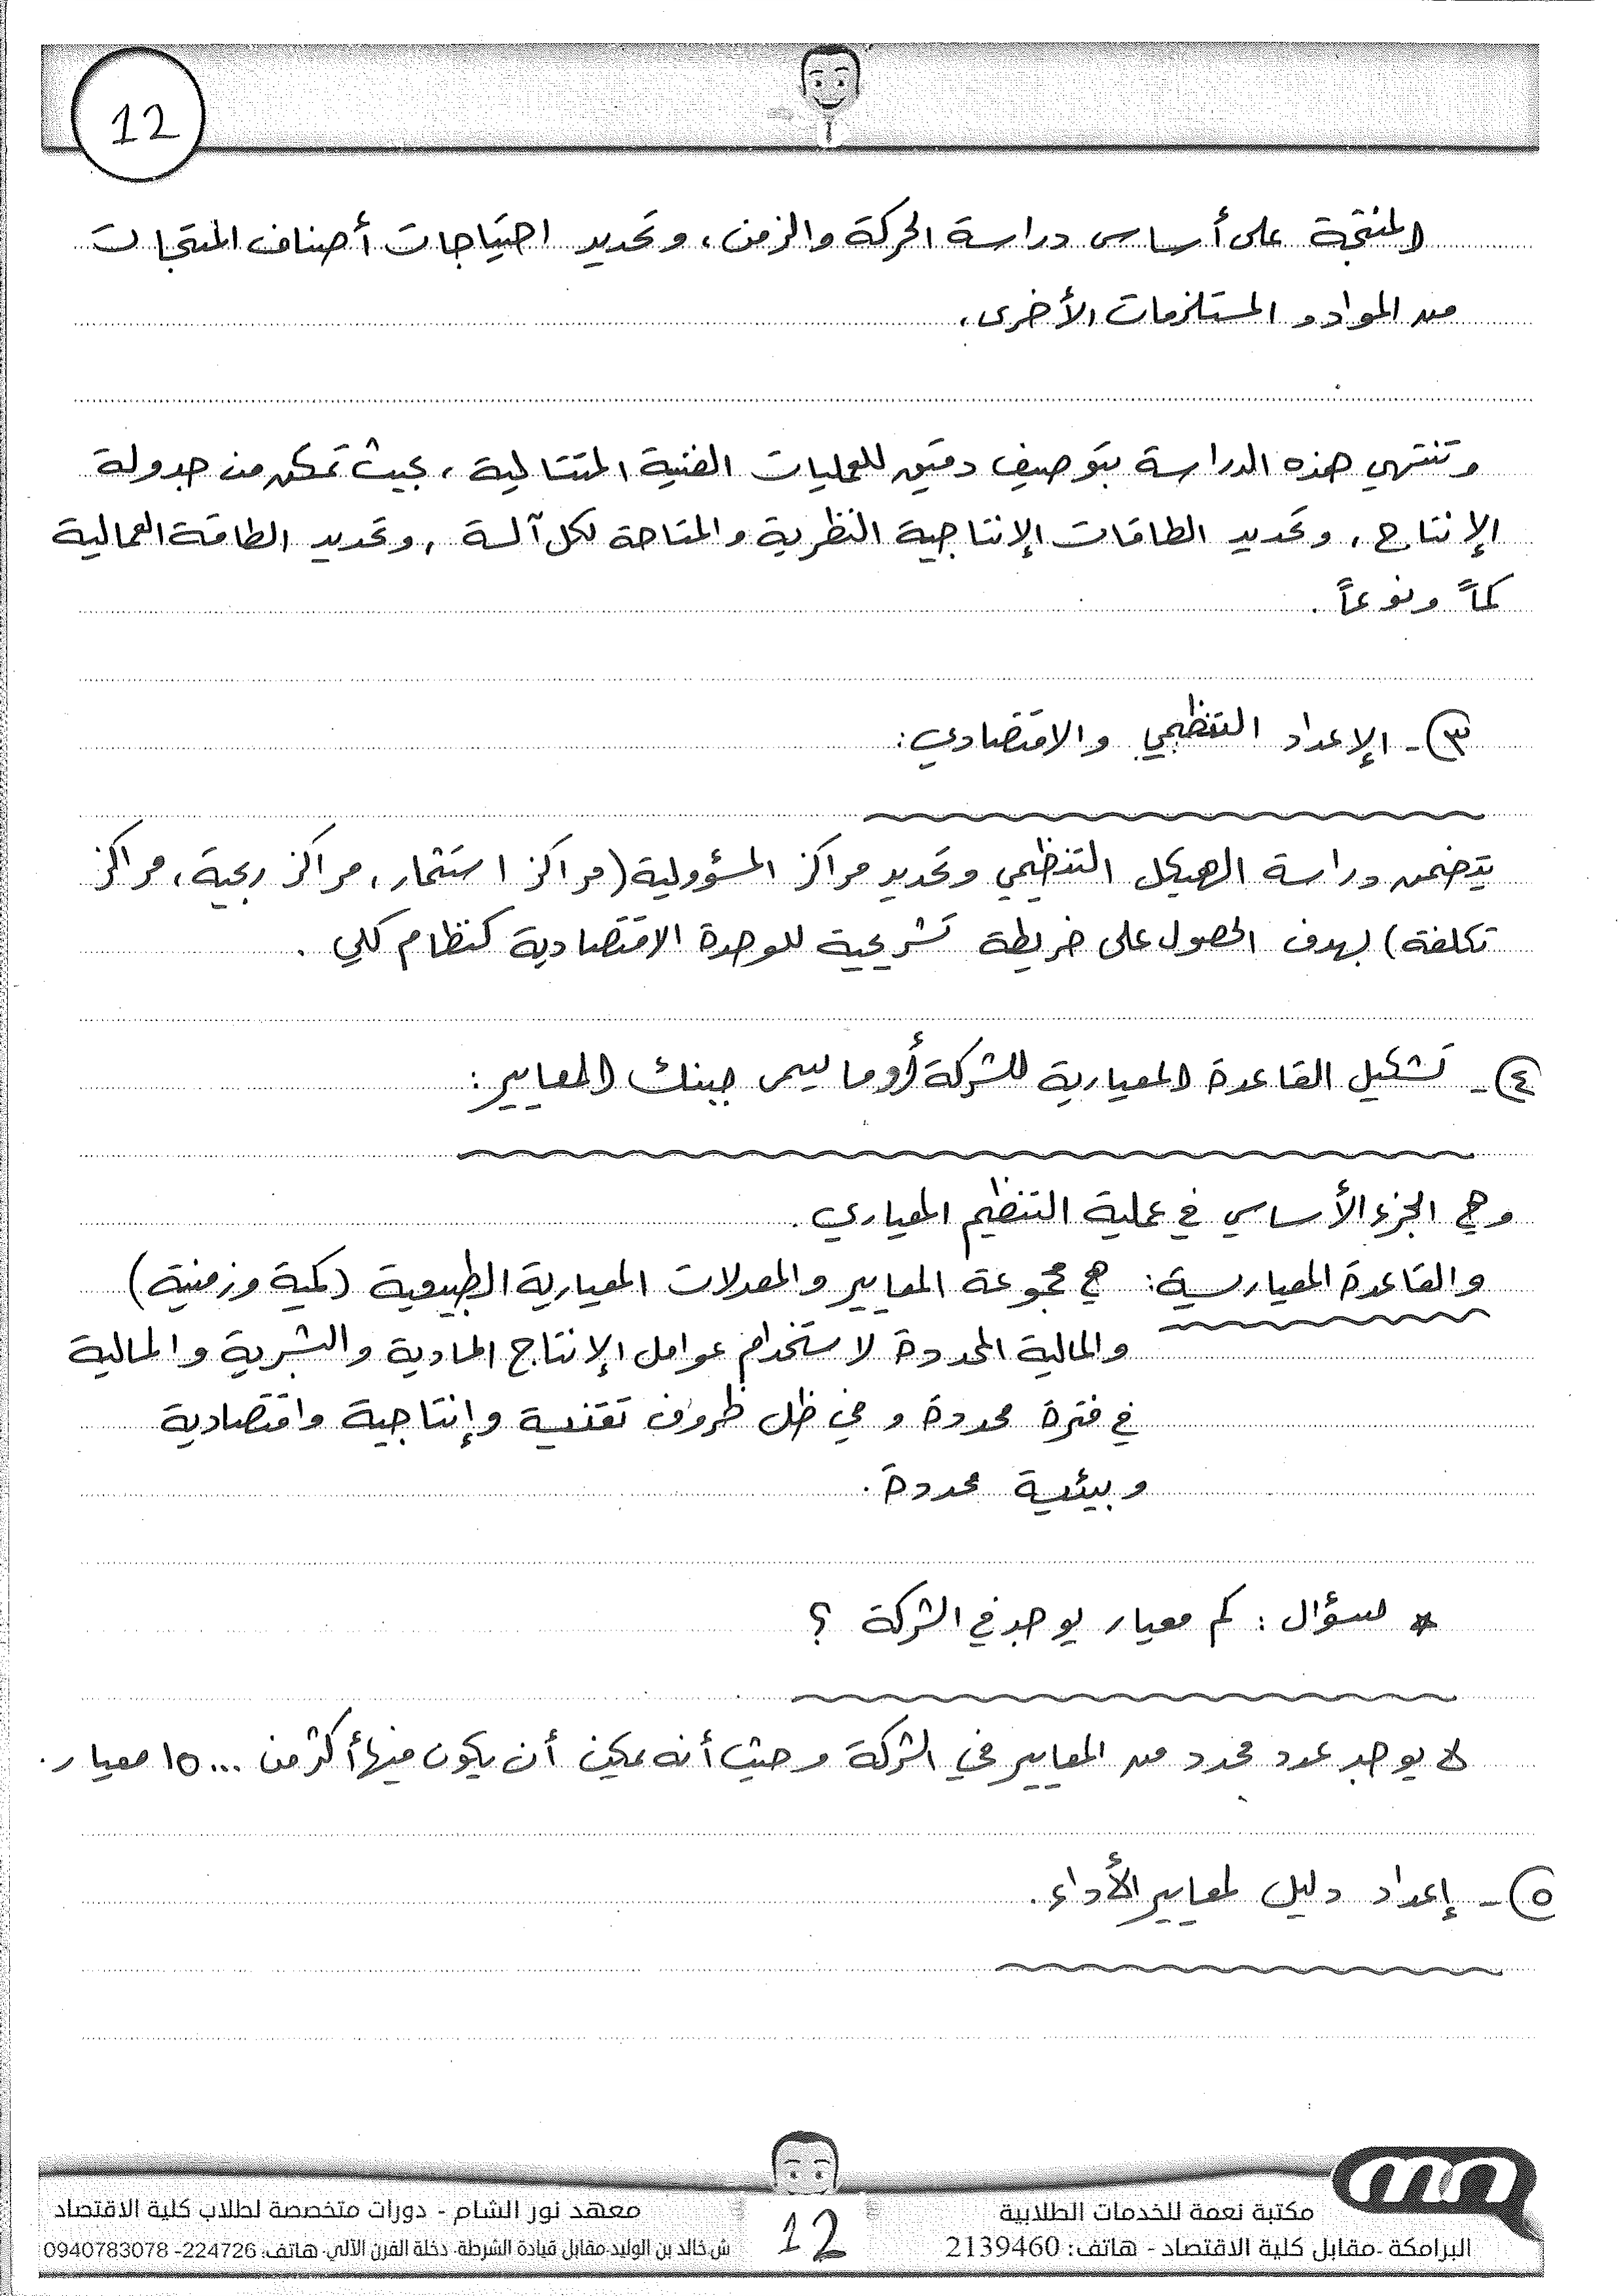 12
المنتجة على أساس دراسة الحركة والزمن، وتحديد احتياجات أصناف المنتجات
من المواد و المستلزمات الأخرى،
وتنتهي هذه الدراسة بتوصيف دقيق للعمليات الفنية المتتالية، بحيث تمكن من جدولة
الإنتاج، وتحديد الطاقات الإنتاجية النظرية والمتاحة لكل آلة، وتحديد الطاقة العمالية
كماً ونوعاً.
٣- الإعداد التنظيمي والاقتصادي:
يتضمن دراسة الهيكل التنظيمي وتحديد مراكز المسؤولية (مراكز استثمار، مراكز ربحية، مراكز
تكلفة) بهدف الحصول على خريطة تشريحية للوحدة الاقتصادية كنظام كلي.
٤- تشكيل القاعدة المعيارية للشركة أو ما يسمى ببنك المعايير:
وهي الجزء الأساسي في عملية التنظيم المعياري.
والقاعدة المعيارية: هي مجموعة المعايير والمعدلات المعيارية الطبيعية (كمية وزمنية)
والمالية المحددة لاستخدام عوامل الإنتاج المادية والبشرية والمالية
في فترة محددة وفي ظل ظروف تقنية وإنتاجية واقتصادية
وبيئية محددة.
* سؤال: كم معيار يوجد في الشركة ؟
لا يوجد عدد محدد من المعايير في الشركة وحيث أنه يمكن أن يكون فيها أكثر من ١٥٠٠٠ معيار.
٥- إعداد دليل لمعايير الأداء.
مكتبة نعمة للخدمات الطلابية
البرامكة -مقابل كلية الاقتصاد - هاتف: 2139460
12
معهد نور الشام - دورات متخصصة لطلاب كلية الاقتصاد
ش.خالد بن الوليد-مقابل قيادة الشرطة- دخلة الفرن الآلي- هاتف: 224726- 0940783078